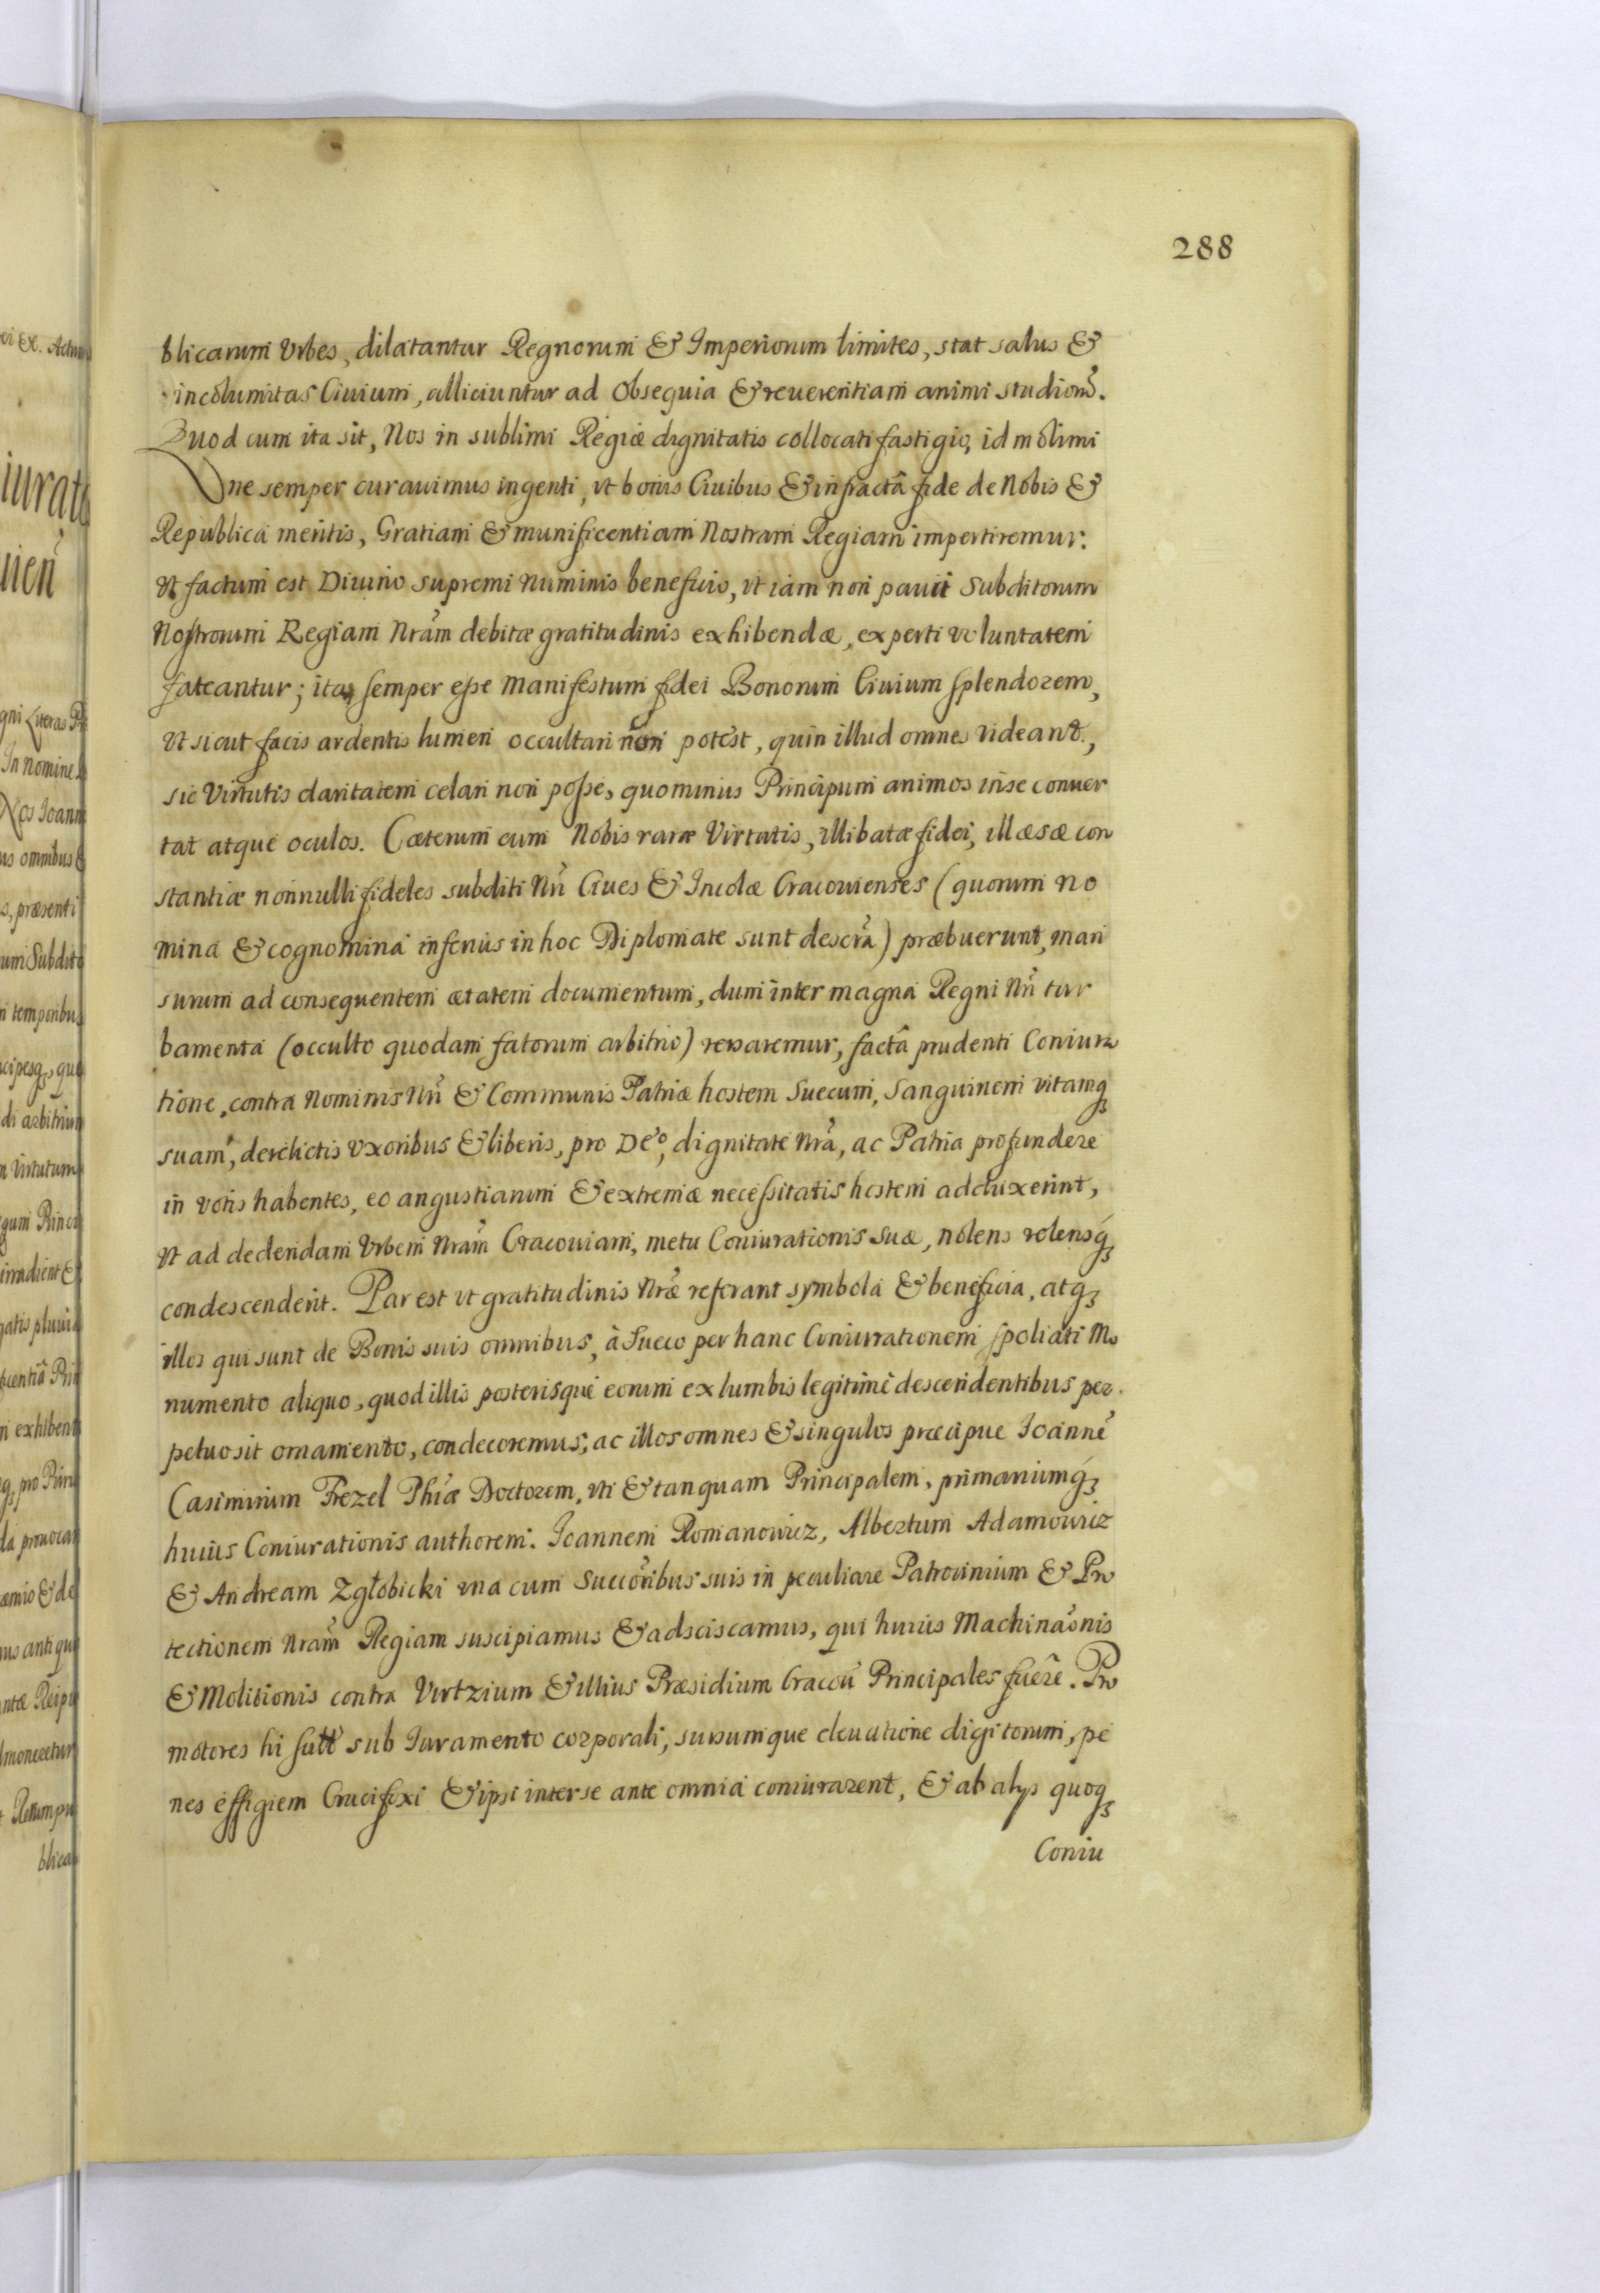 288
blicarum Vrbes, dilatantur Regnorum & Imperiorum limites, stat salus &
incolumitas Ciuium, alliciuntur ad Obsequia & reuerentiam animi studiorũ.
Quod cum ita sit, Nos in sublimi Regiæ dignitatis collocati fastigio, id molimi
ne semper curauimus ingenti, vt bonis Ciuibus & infractâ fide de Nobis &
Republica meritis, Gratiam & munificentiam Nostram Regiam impertiremur:
Vt factum est Diuino supremi Numinis beneficio, vt iam non pauci Subditorum
Nostrorum Regiam Nrãm debitæ gratitudinis exhibendæ, experti voluntatem
fateantur; ita semper esse Manifestum fidei Bonorum Ciuium splendorem,
Vt sicut facis ardentis lumen occultari non potest, quin illud omnes videant,
sic Virtutis claritatem celari non posse, quominus Principum animos in se conuer
tat atque oculos. Cæterum cum Nobis raræ Virtutis, illibatæ fidei, illæsæ con
stantiæ nonnulli fideles subditi Nrĩ Ciues & Incolæ Cracouienses (quorum no
mina & cognomina inferius in hoc Diplomate sunt descrã) præbuerunt, man
surum ad consequentem ætatem documentum, dum inter magna Regni Nrĩ tur
bamenta (occulto quodam fatorum arbitrio) versaremur, factâ prudenti Coniura
tione, contra Nominis Nrĩ & Communis Patriæ hostem Suecum, Sanguinem vitamq
suam, derelictis vxoribus & liberis, pro Deo, dignitate Nrã, ac Patria profundere
in votis habentes, eo angustiarum & extremæ necessitatis hostem adduxerint,
Vt ad dedendam Vrbem Nrãm Cracouiam, metu Coniurationis suæ, nolens volensq
condescenderit. Par est vt gratitudinis Nræ referant symbola & beneficia, atq
illos qui sunt de Bonis suis omnibus, à Sueco per hanc Coniurationem spoliati Mo
numento aliquo, quod illis posterisque eorum ex lumbis legitimè descendentibus per
petuo sit ornamento, condecoremus; ac illos omnes & singulos præcipue Ioannẽ
Casimirum Frezel Phiæ Doctorem, vti & tanquam Principalem, primariumq
huius Coniurationis authorem. Ioannem Romanowicz, Albertum Adamowicz
& Andream Zgłobicki vna cum Succoribus suis in peculiare Patrocinium & Pro
tectionem Nrãm Regiam suscipiamus & adsciscamus, qui huius Machinaonis
& Molitionis contra Virtzium & illius Præsidium Cracou Principales fuere. Pro
motores hi sub Iuramento corporali, sursumque eleuatione digitorum, pe
nes effigiem Crucifixi & ipsi inter se ante omnia coniurarent, & ab alys quoq
Coniu